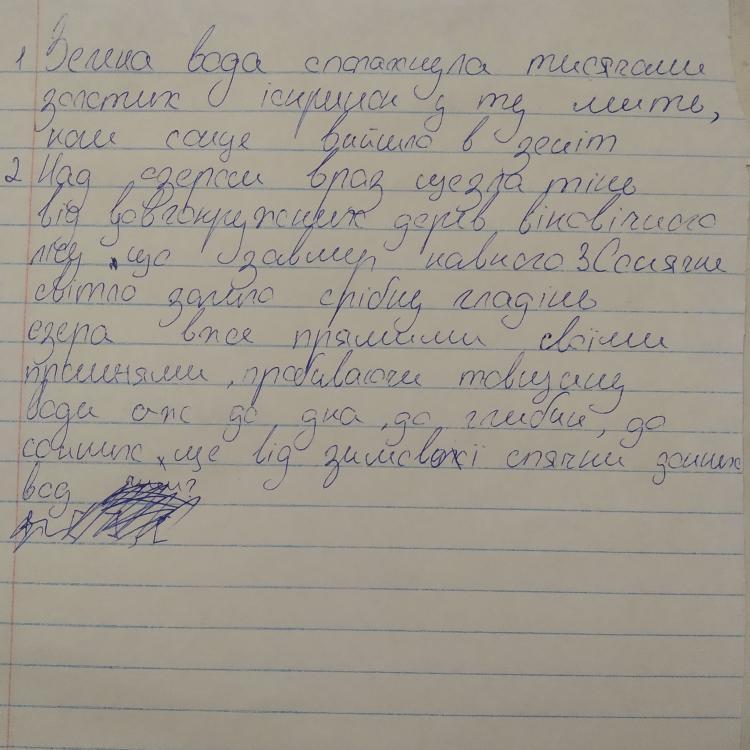 1 Зелена вода спалахнула тисячами
золотих іскринок у ту мить,
коли сонце вийшло в зеніт
2 Над озером враз щезла тінь
від довгокружених дерев віковічного
лісу, що завмер навкого 3 Сонячне
світло залило срібну гладінь
озера вже прямими своїми
променями, пробиваючи товщину
води аж до дна, до глибин, до
сонних, ще від зимової сплячки
вод